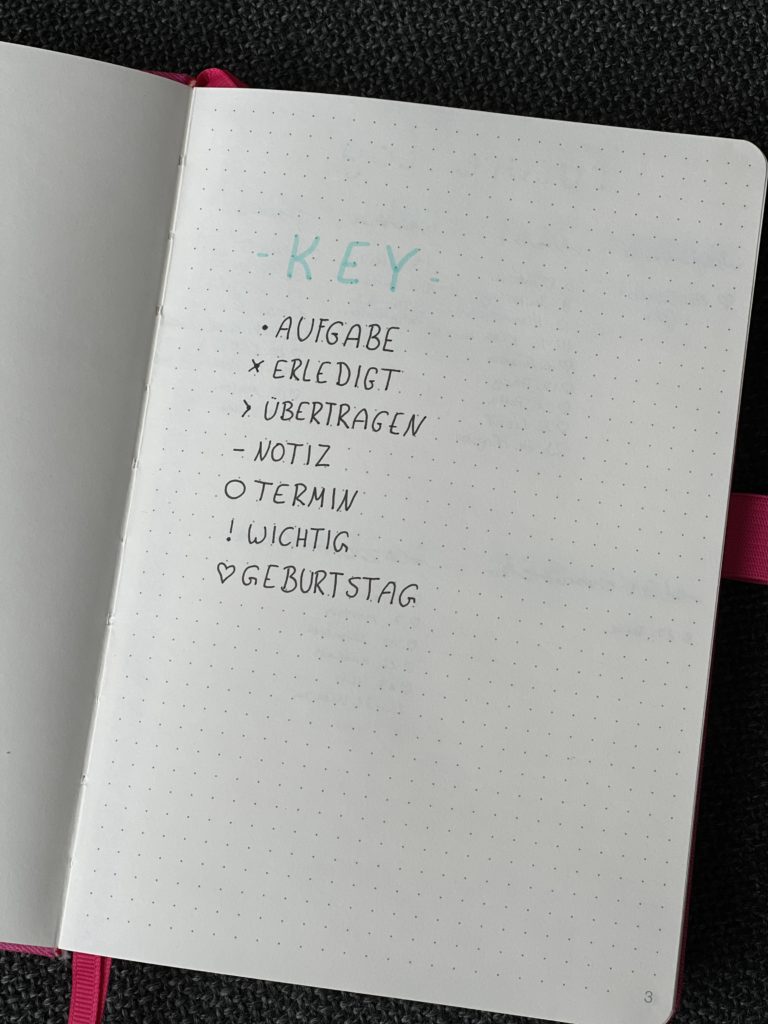 - KEY -
• AUFGABE
× ERLEDIGT
> ÜBERTRAGEN
– NOTIZ
○ TERMIN
! WICHTIG
♡ GEBURTSTAG
3